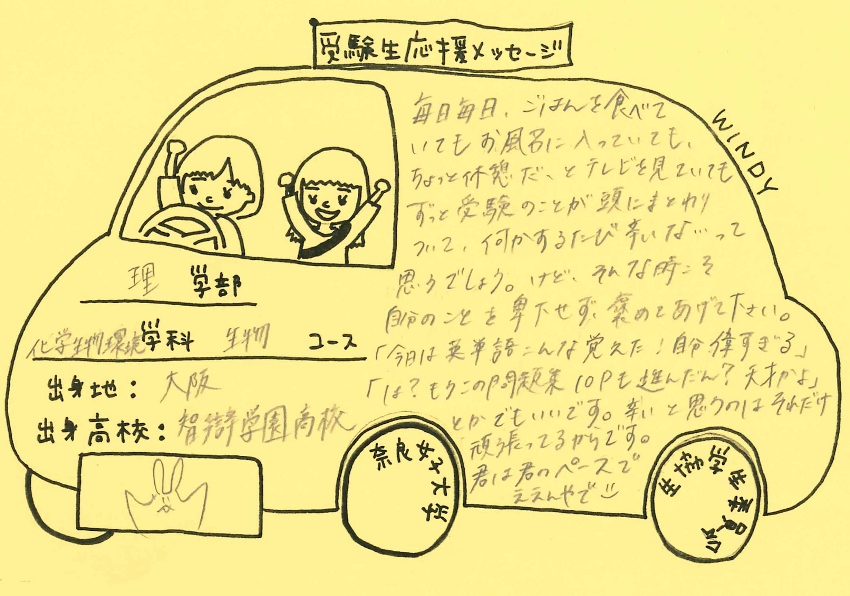 受験生応援メッセージ
WINDY
毎日毎日、ごはんを食べて
いてもお風呂に入っていても、
ちょっと休憩だ、とテレビを見ていても
ずっと受験のことが頭にまとわり
ついて、何かするたび辛いな…って
思うでしょう。けど、そんな時こそ
自分のことを卑下せず、褒めてあげて下さい。
「今日は英単語こんな覚えた！自分偉すぎる」
「は？もうこの問題集10Pも進んだん？天才かよ」
とかでもいいです。辛いと思うのはそれだけ
頑張ってるからです。
君は君のペースで
ええんやで
理 学部
化学生物環境学科 生物 コース
出身地：大阪
出身高校：智辯学園高校
奈良女子大学
生協学生委員会